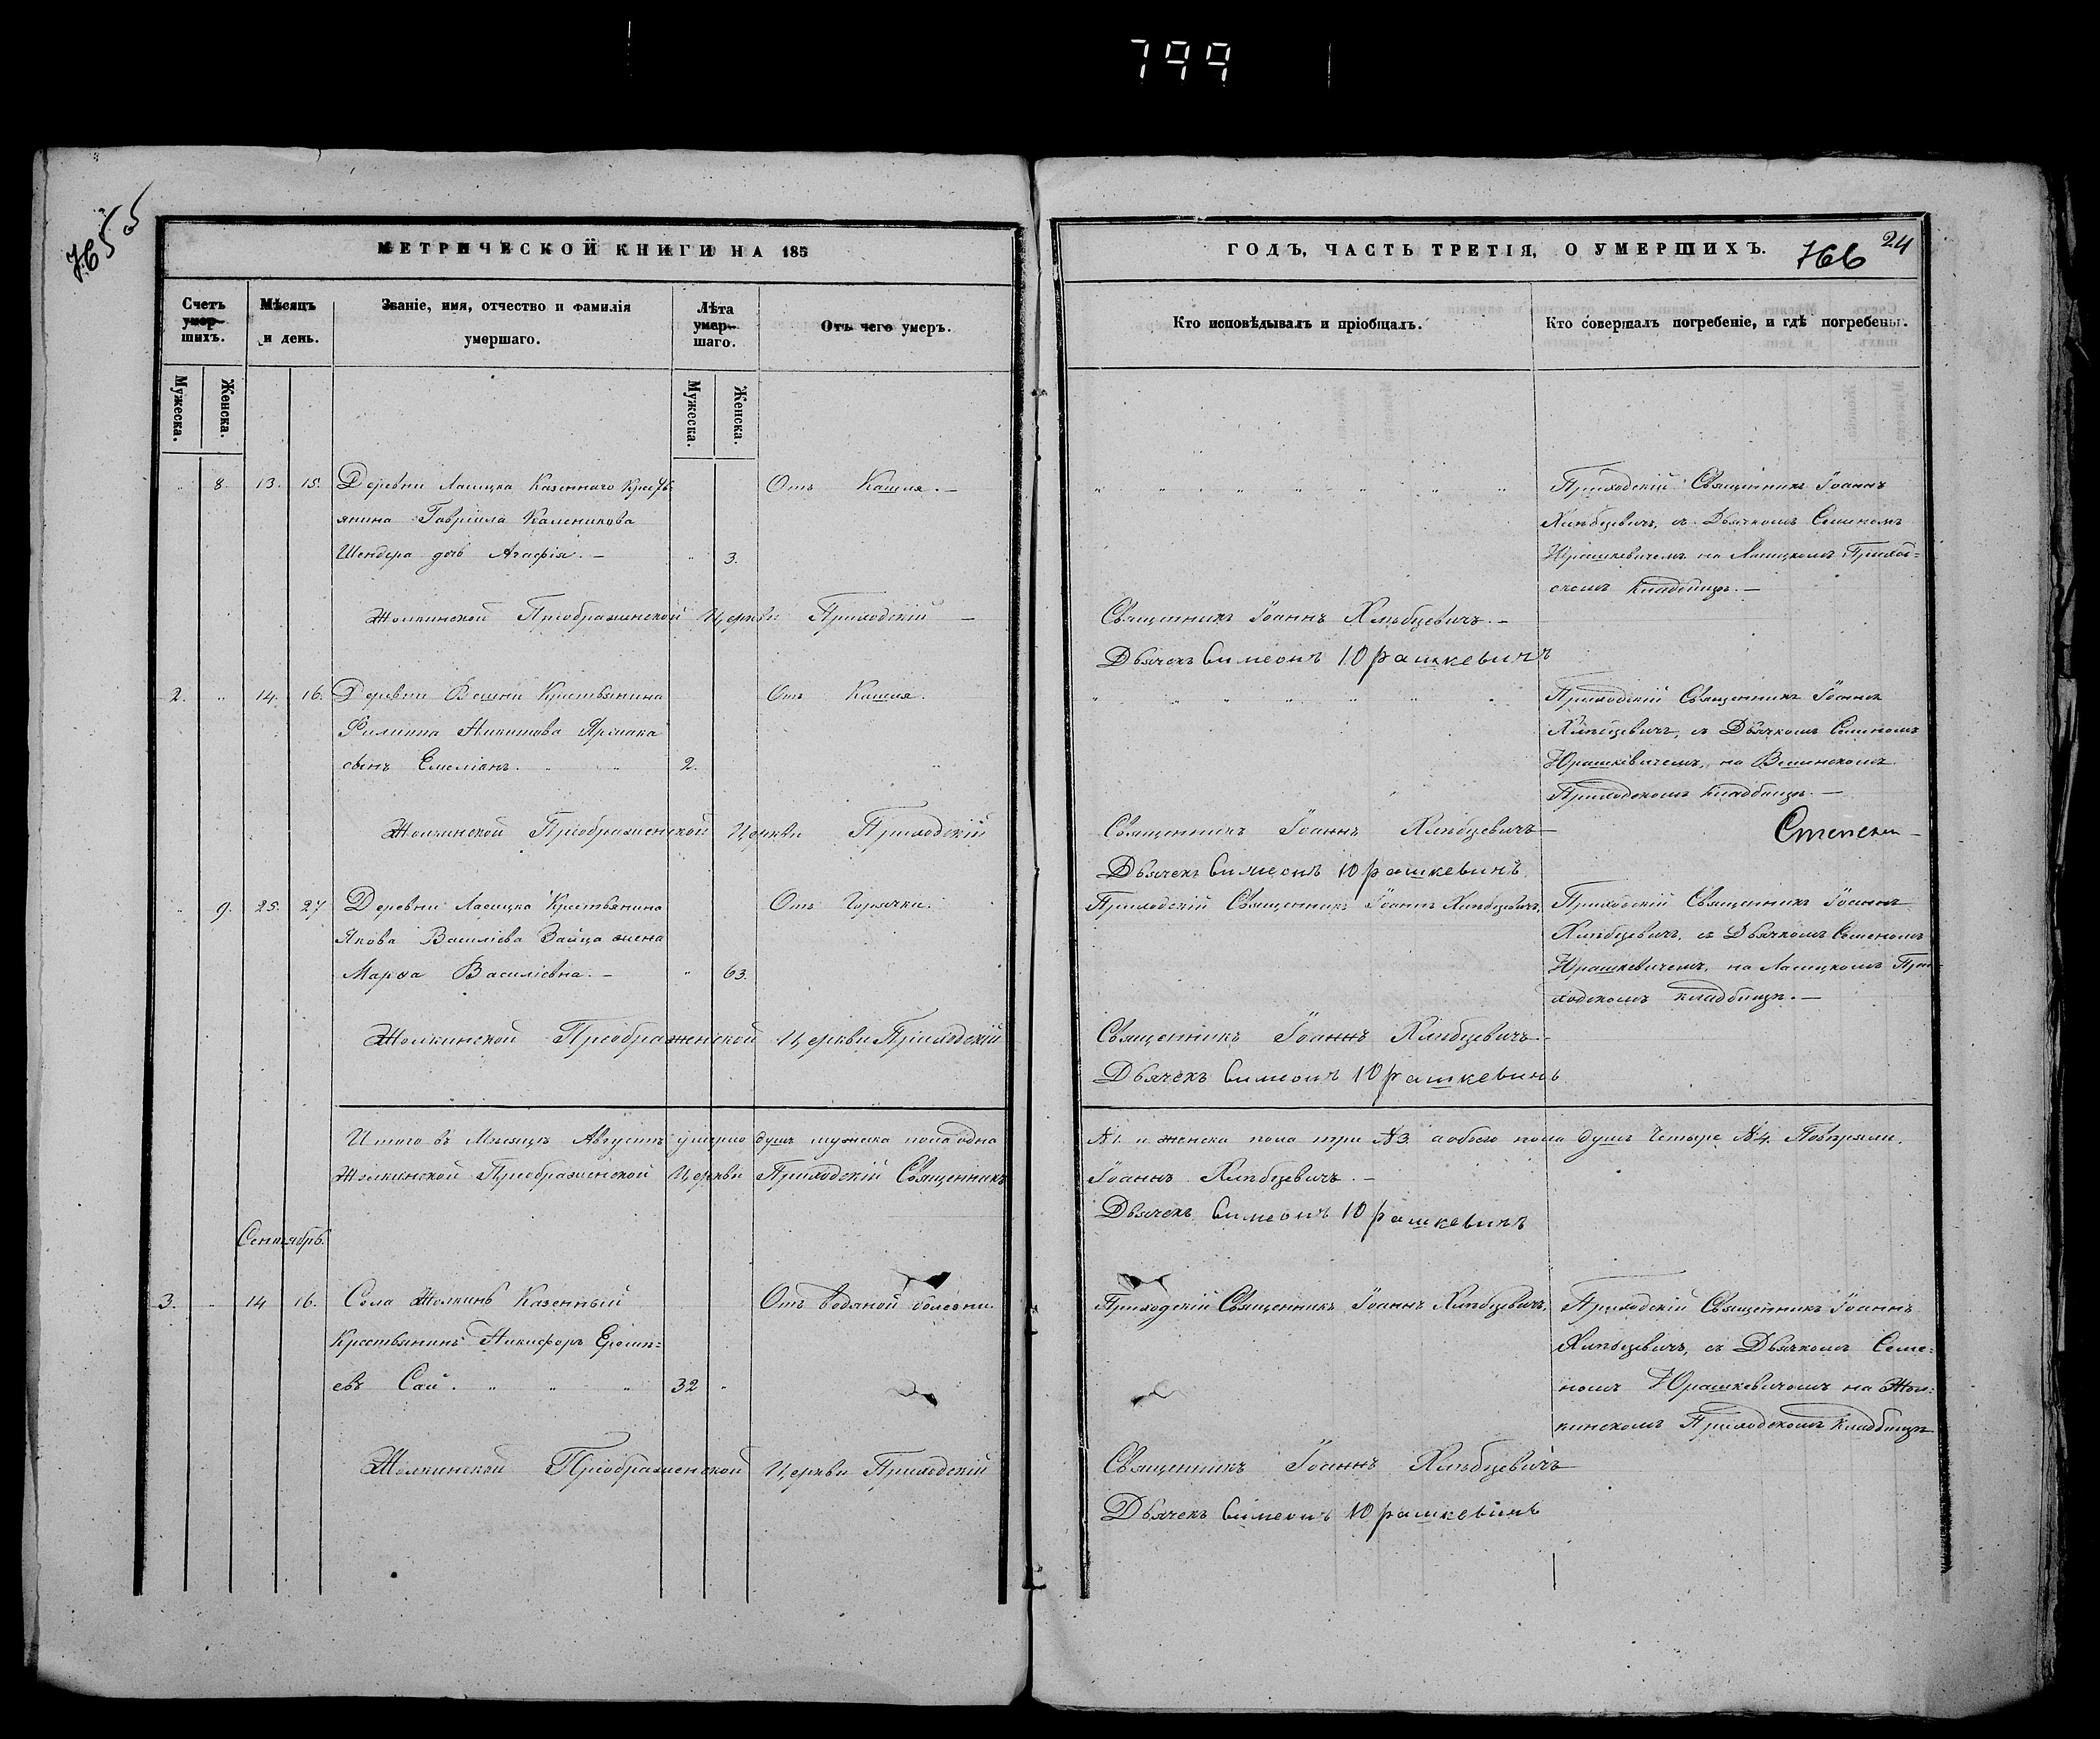 799
765
МЕТРИЧЕСКОЙ КНИГИ НА 185
Счетъ умер-шихъ.
Мѣсяцъ и день.
Званіе, имя, отчество и фамилія умершаго.
Лѣта умер-шаго.
Отъ чего умеръ.
Мужеска.
Женска.
Мужеска.
Женска.
" 8. 13. 15. Деревни Ласицка Казеннаго Кресть
янина Гавріила Каленикова
Шендера дочь Агафія. — " 3.
Отъ Кашля. —
Жолкинской Преображенской Церкви Приходскій —
2. " 14. 16. Деревни Вешни Крестьянина
Филиппа Никитова Ярмака
сынъ Емеліанъ. " " 2.
Отъ Кашля.
Жолкинской Преображенской Церкви Приходскій
" 9. 25. 27 Деревни Ласицка Крестьянина
Якова Василіева Зайца жена
Марѳа Василіевна. — " 63.
Отъ Горячки.
Жолкинской Преображенской Церкви Приходскій
Итого въ Мѣсяцѣ Августѣ умерло душъ мужеска пола одна
Жолкинской Преображенской Церкви Приходскій Священникъ
Сентябрь.
3. " 14 16. Села Жолкинь Казенный
Крестьянинъ Никифоръ Ерошѣ=
евъ Сай. " " " 32 "
Отъ водяной болезни.
Жолкинской Преображенской Церкви Приходскій
ГОДЪ, ЧАСТЬ ТРЕТІЯ, О УМЕРШИХЪ.
766
24
Кто исповѣдывалъ и пріобщалъ.
Кто совершалъ погребеніе, и гдѣ погребены.
" " " " " " " "
Приходскій Священникъ Іоаннъ
Хлѣбцевичъ, съ Дьячкомъ Семеномъ
Юрашкевичемъ на Ласицкомъ Приход=
скомъ кладбищѣ. —
Священникъ Іоаннъ Хлѣбцевичъ. —
Дьячекъ Симеонъ Юрашкевичъ
" " " " " " "
Приходскій Священникъ Іоаннъ
Хлѣбцевичъ, съ Дьячкомъ Семеномъ
Юрашкевичемъ, на Вешнскомъ
Приходскомъ кладбищѣ. —
Священникъ Іоаннъ Хлѣбцевичъ —
Дьячекъ Симеонъ Юрашкевичъ
Приходскій Священникъ Іоаннъ Хлѣбцевичъ,
Приходскій Священникъ Іоаннъ
Хлѣбцевичъ, съ Дьячкомъ Семеномъ
Юрашкевичемъ, на Ласицкомъ При-
ходскомъ кладбищѣ. —
Священникъ Іоаннъ Хлѣбцевичъ
Дьячекъ Симеонъ Юрашкевичъ
№1. и женска пола три №3. а обоего пола душъ Четыре №4. Повѣряли.
Іоаннъ Хлѣбцевичъ. —
Дьячекъ Симеонъ Юрашкевичъ
Приходскій Священникъ Іоаннъ Хлѣбцевичъ,
Приходскій Священникъ Іоаннъ
Хлѣбцевичъ, съ Дьячкомъ Семе=
номъ Юрашкевичомъ на Жол=
кинскомъ Приходскомъ кладбищѣ
Священникъ Іоаннъ Хлѣбцевичъ
Дьячекъ Симеонъ Юрашкевичъ